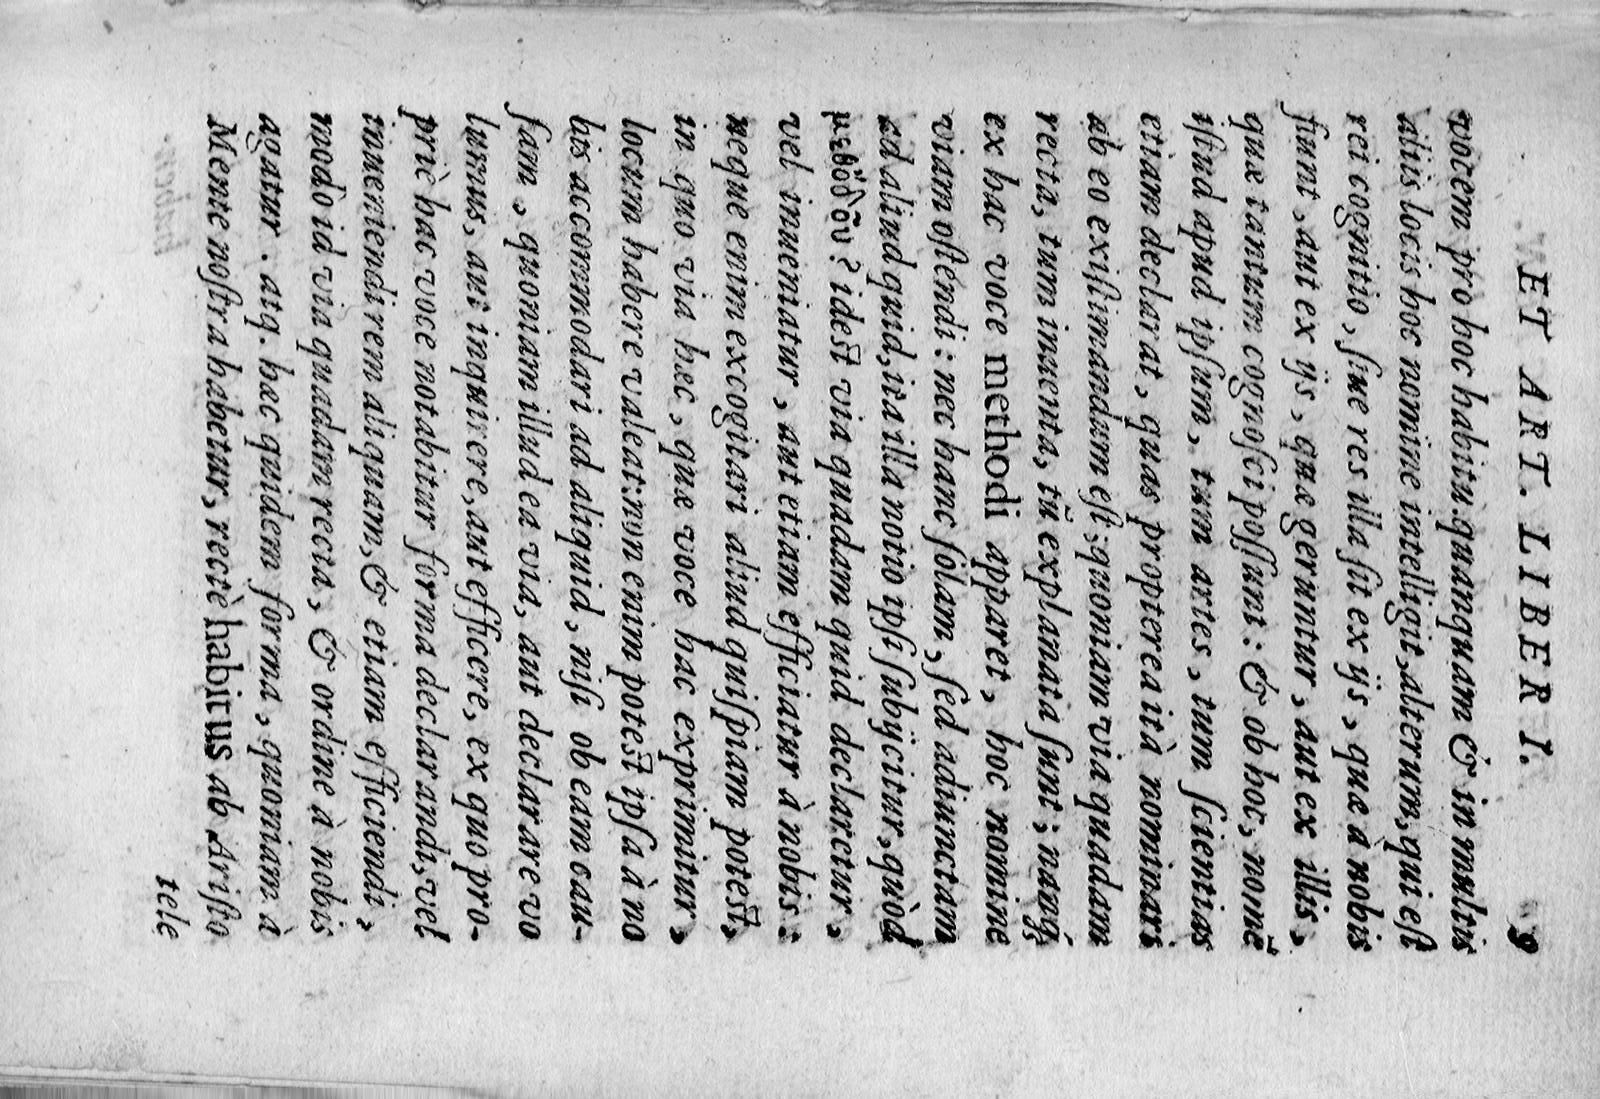 ET ART. LIBER I. 9
vocem pro hoc habitu. quanquam & in multis
aliis locis hoc nomine intelligit, alterum, qui est
rei cognitio, siue res illa sit ex ijs, quæ à nobis
sunt, aut ex ijs, quæ geruntur, aut ex illis,
quæ tantum cognosci possunt: & ob hoc, nomẽ
istud apud ipsum, tum artes, tum scientias
etiam declarat, quas propterea ità nominari
ab eo existimandum est; quoniam via quadam
recta, tum inuenta, tũ explanata sunt; nanq́;
ex hac voce methodi apparet, hoc nomine
viam ostendi: nec hanc solam, sed adiunctam
ad aliud quid, ita illa notio ipsi subijcitur, quòd
μεθόδου? idest via quadam quid declaretur,
vel inueniatur, aut etiam efficiatur à nobis:
neque enim excogitari aliud quispiam potest,
in quo via hæc, quæ voce hac exprimitur,
locum habere valeat: non enim potest ipsa à no
bis accommodari ad aliquid, nisi ob eam cau-
sam, quoniam illud ea via, aut declarare vo
lumus, aut inquirere, aut efficere, ex quo pro-
priè hac voce notabitur forma declarandi, vel
inueniendi rem aliquam, & etiam efficiendi,
modò id via quadam recta, & ordine à nobis
agatur. atq. hec quidem forma, quoniam à
Mente nostra habetur, rectè habitus ab Aristo
tele